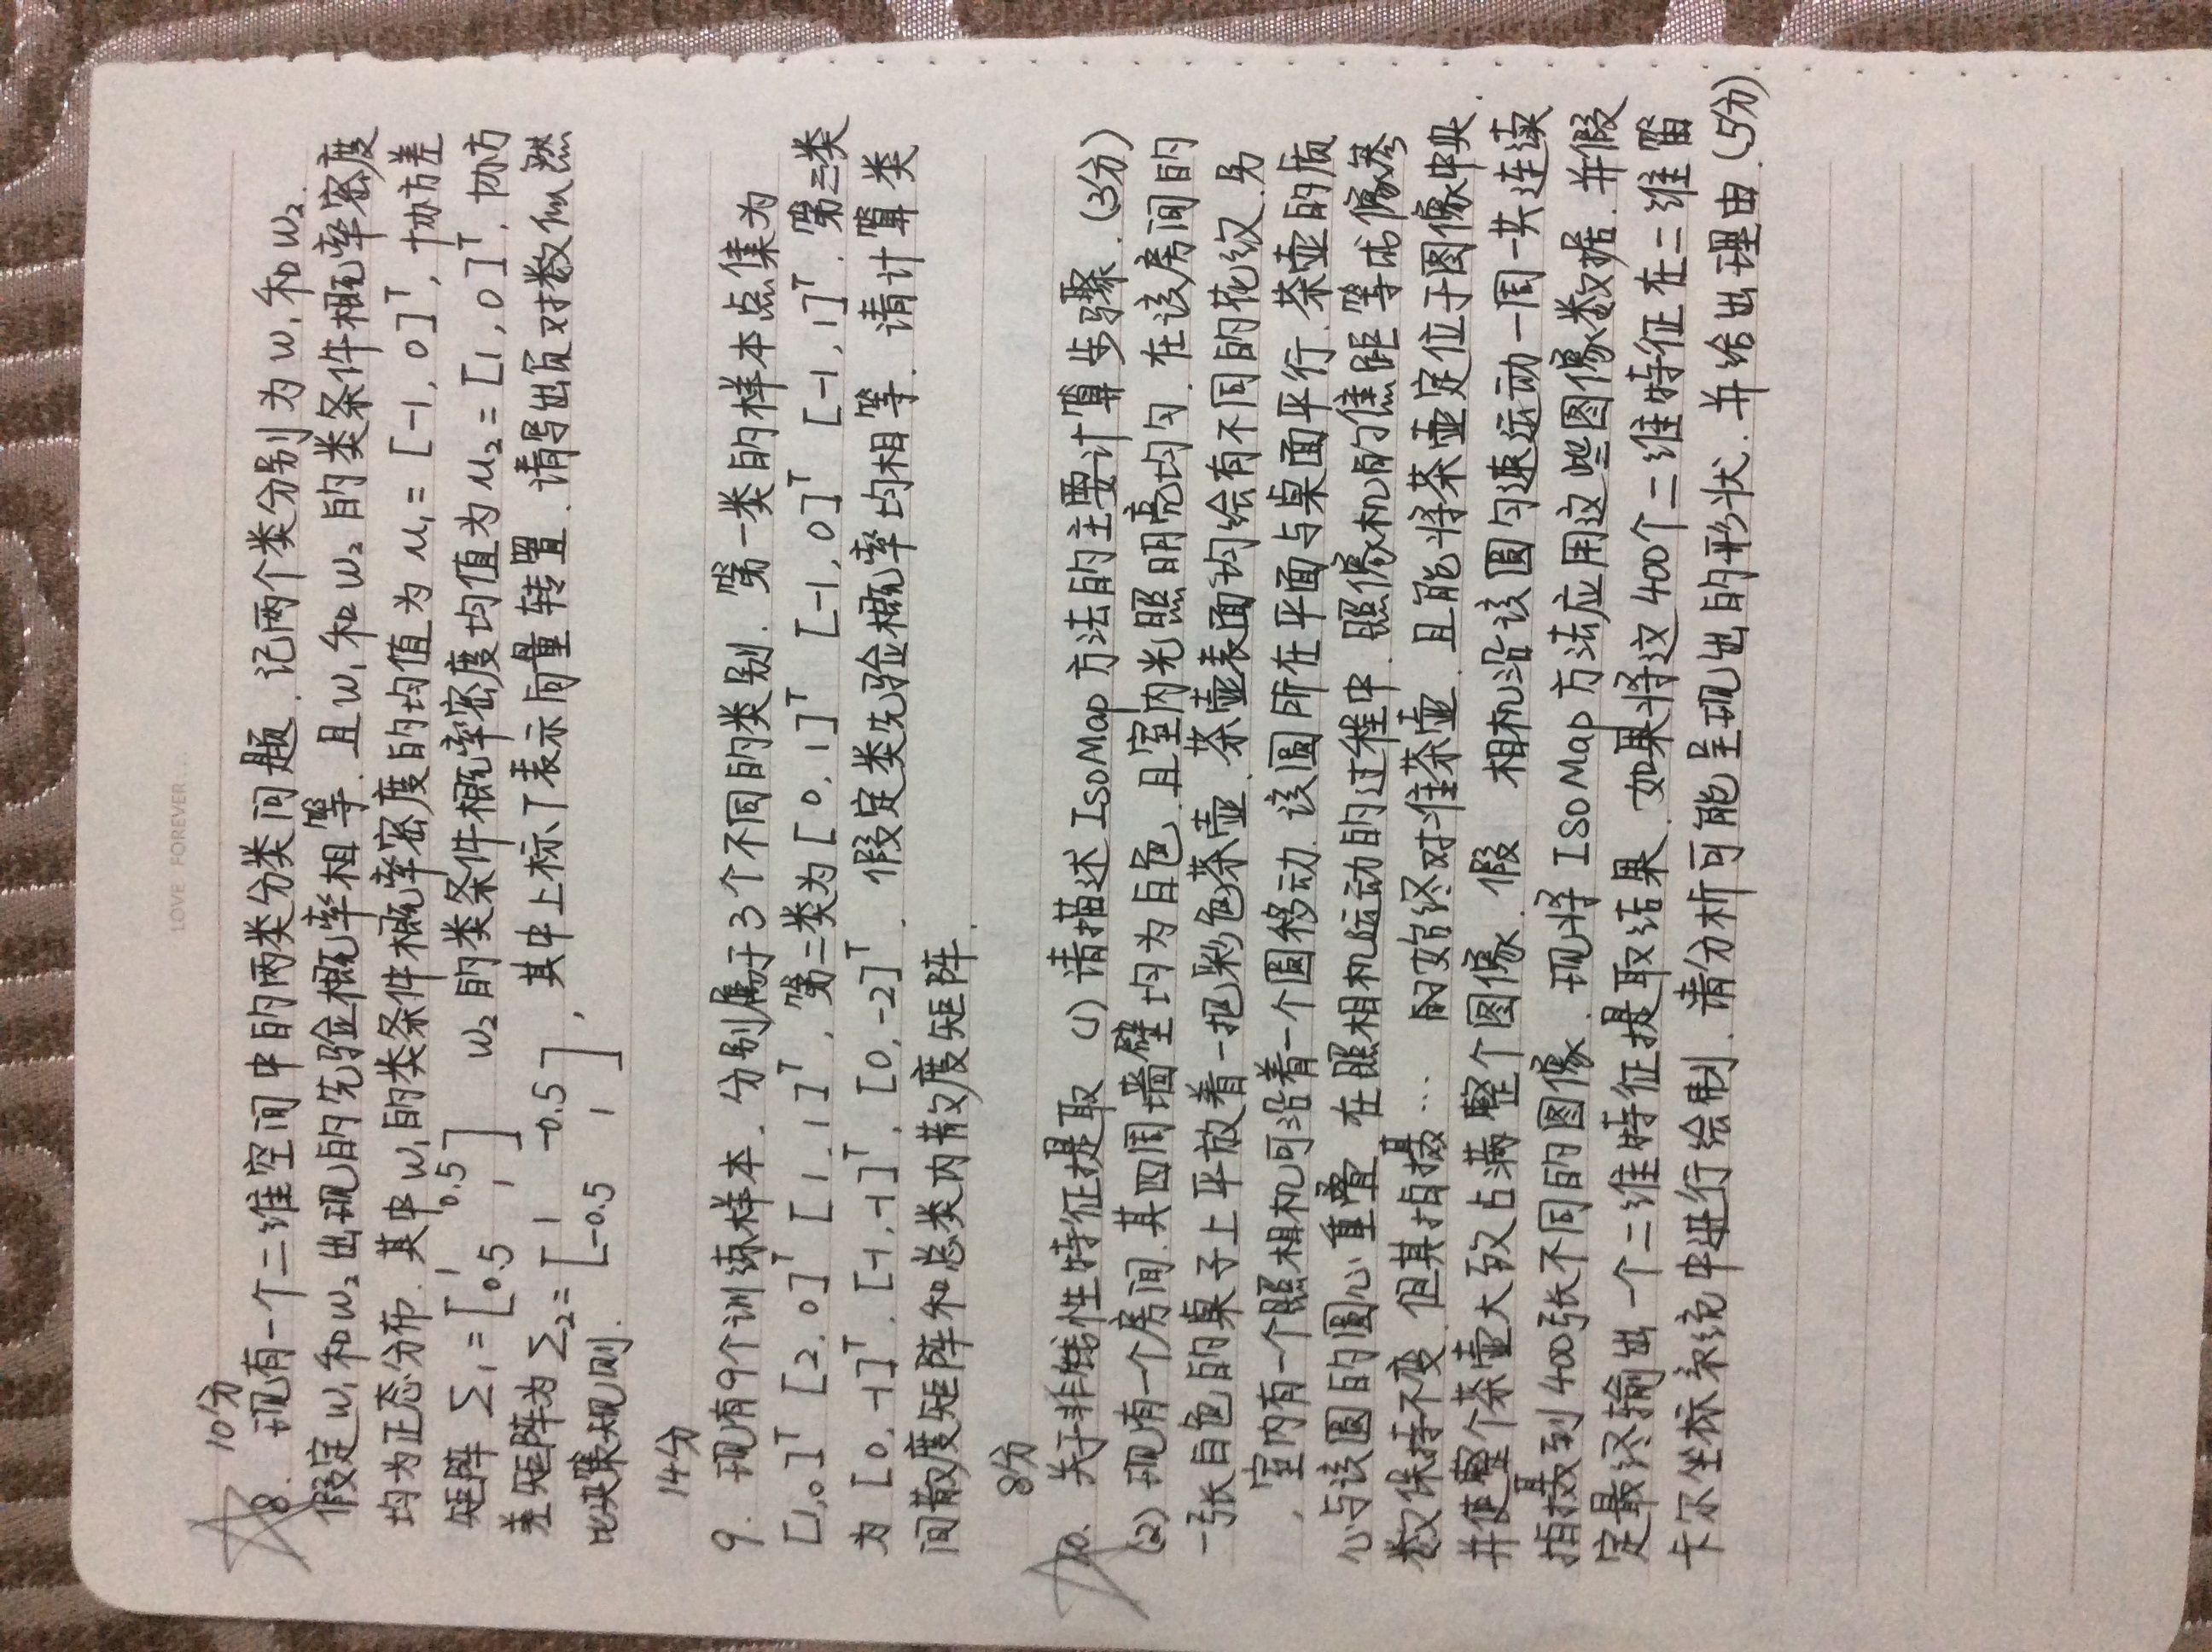 LOVE FOREVER...
10分
8. 现有一个二维空间中的两类分类问题. 记两个类分别为 w₁ 和 w₂.
假定 w₁ 和 w₂ 出现的先验概率相等. 且 w₁ 和 w₂ 的类条件概率密度
均为正态分布. 其中 w₁ 的类条件概率密度的均值为 u₁ = [-1, 0]ᵀ, 协方差
矩阵 Σ₁ = [1 0.5; 0.5 1] w₂ 的类条件概率密度均值为 u₂ = [1, 0]ᵀ. 协方
差矩阵为 Σ₂ = [1 -0.5; -0.5 1], 其中上标 T 表示向量转置. 请导出负对数似然
比决策规则.
14分
9. 现有9个训练样本. 分别属于3个不同的类别. 第一类的样本点集为
[1,0]ᵀ [2,0]ᵀ [1,1]ᵀ, 第二类为 [0,1]ᵀ [-1,0]ᵀ [-1,1]ᵀ. 第三类
为 [0,-1]ᵀ. [-1,-1]ᵀ. [0,-2]ᵀ. 假定类先验概率均相等. 请计算类
间散度矩阵和总类内散度矩阵.
8分
10. 关于非线性特征提取 (1) 请描述 IsoMap 方法的主要计算步骤. (3分)
(2) 现有一个房间. 其四周墙壁均为白色. 且室内光照明亮均匀. 在该房间的
一张白色的桌子上平放着一把彩色茶壶. 茶壶表面均绘有不同的花纹. 另
, 室内有一个照相机可沿着一个圆移动. 该圆所在平面与桌面平行. 茶壶的质
心与该圆的圆心重叠. 在照相机运动的过程中. 照像机的焦距等成像参
数保持不变. 但其拍摄... 始终对准茶壶. 且能将茶壶定位于图像中央.
并使整个茶壶大致占满整个图像. 假 相机沿该圆匀速运动一周一共连续
拍摄到400张不同的图像. 现将 IsoMap 方法应用这些图像数据. 并假
定最终输出一个二维特征提取结果. 如果将这400个二维特征在二维笛
卡尔坐标系统中进行绘制. 请分析可能呈现出的形状. 并给出理由. (5分)